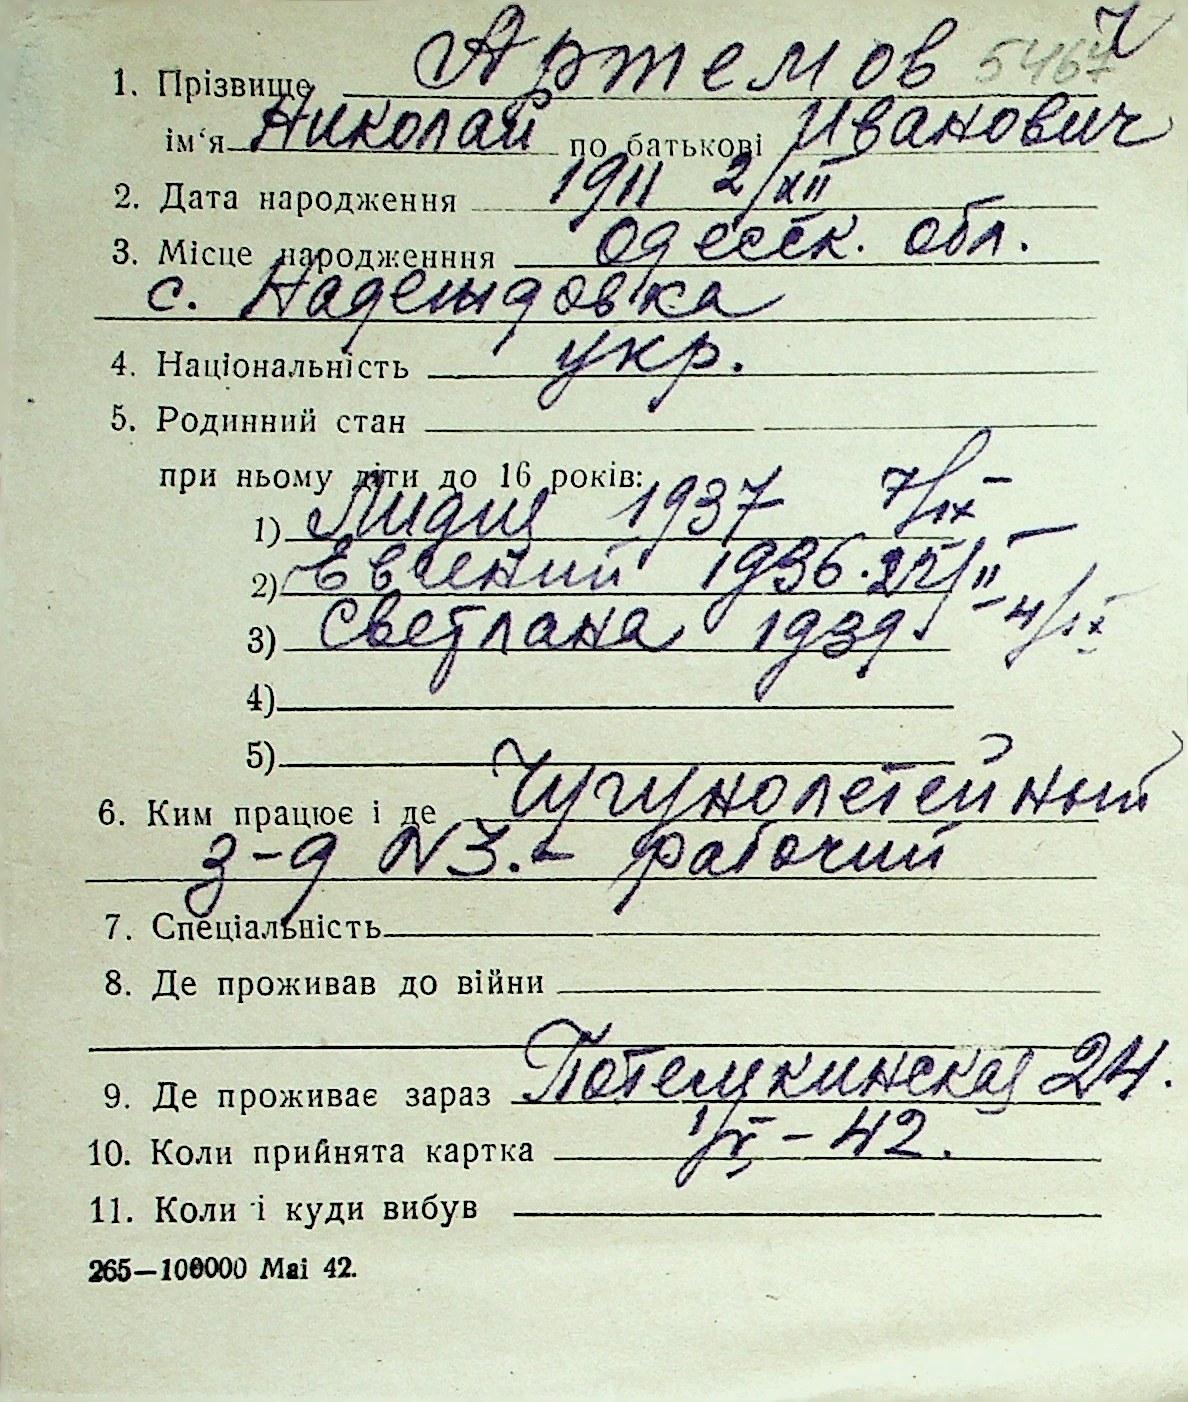 1. Прізвище Артемов 5467
ім‘я Николай по батькові Иванович
2. Дата народження 1911 2/XII
3. Місце народженння Одесск. обл.
с. Надеждовка
4. Національність укр.
5. Родинний стан
при ньому діти до 16 років:
1) Лидия 1937 7/IX
2) Евгений 1936. 25/II
3) Светлана 1939 - 4/IX
4)
5)
6. Ким працює і де Чугунолетейный
з-д N3. - рабочий
7. Спеціальність
8. Де проживав до війни
9. Де проживає зараз Потемкинская 24.
10. Коли прийнята картка - 42.
11. Коли і куди вибув
265—100000 Mai 42.